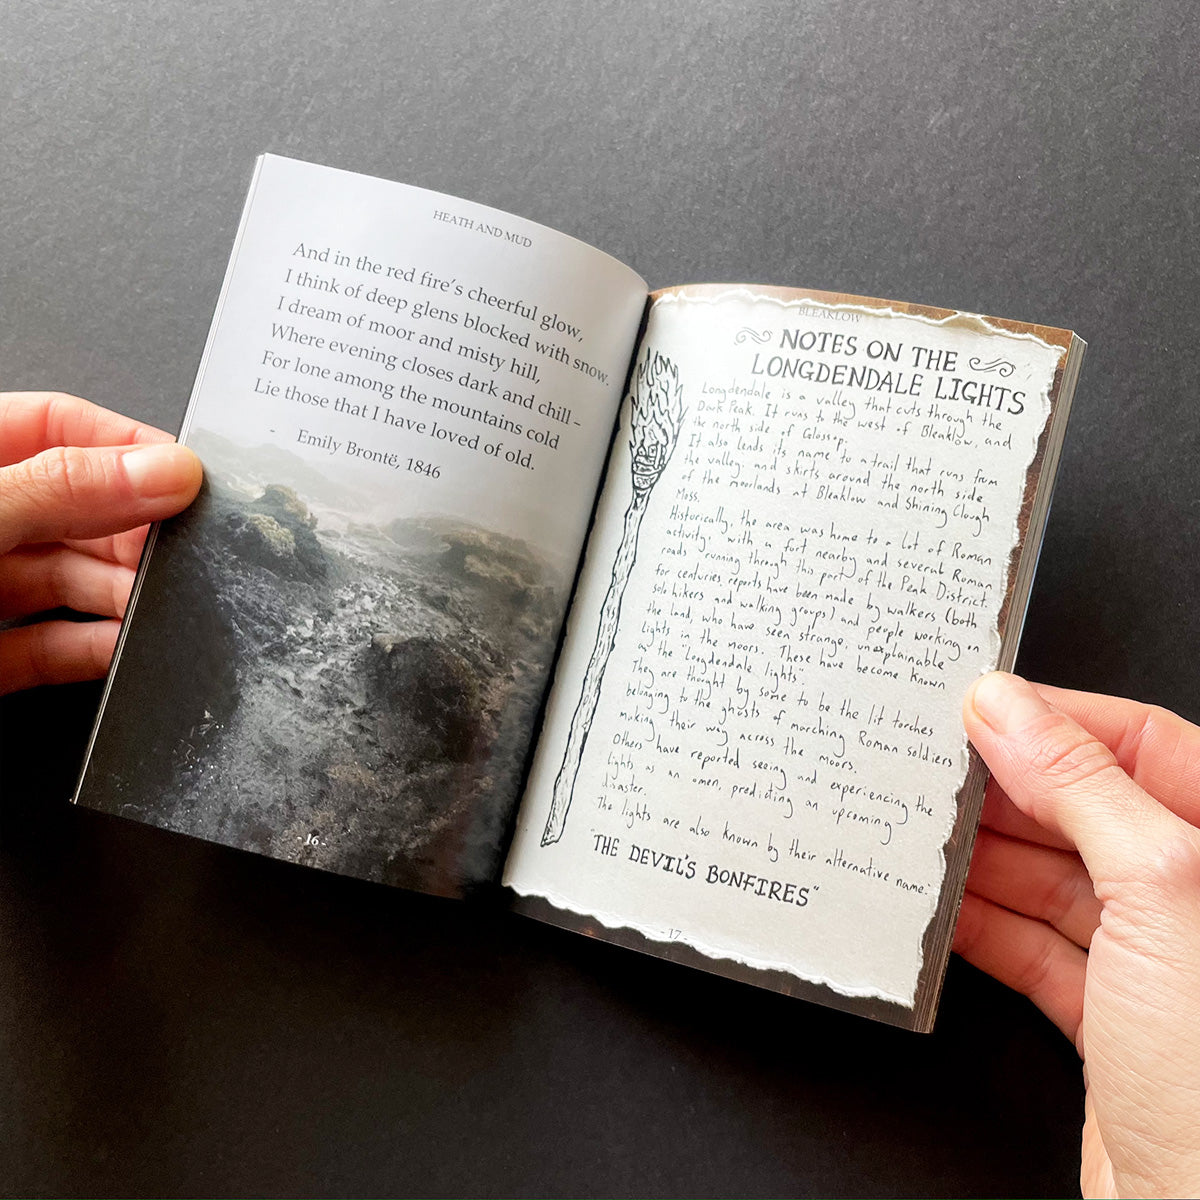 HEATH AND MUD
And in the red fire's cheerful glow,
I think of deep glens blocked with snow.
I dream of moor and misty hill,
Where evening closes dark and chill –
For lone among the mountains cold
Lie those that I have loved of old.
- Emily Brontë, 1846
- 16 -
BLEAKLOW
NOTES ON THE
LONGDENDALE LIGHTS
Longdendale is a valley that cuts through the
Dark Peak. It runs to the west of Bleaklow, and
the north side of Glossop.
It also lends its name to a trail that runs from
the valley, and skirts around the north side
of the moorlands at Bleaklow and Shining Clough
Moss.
Historically, the area was home to a lot of Roman
activity; with a fort nearby and several Roman
roads running through this part of the Peak District.
For centuries reports have been made by walkers (both
solo hikers and walking groups) and people working on
the land, who have seen strange, unexplainable
lights in the moors. These have become known
as the "Longdendale lights".
They are thought by some to be the lit torches
belonging to the ghosts of marching Roman soldiers
making their way across the moors.
Others have reported seeing and experiencing the
lights as an omen, predicting an upcoming
disaster.
The lights are also known by their alternative name:
"THE DEVIL'S BONFIRES"
- 17 -